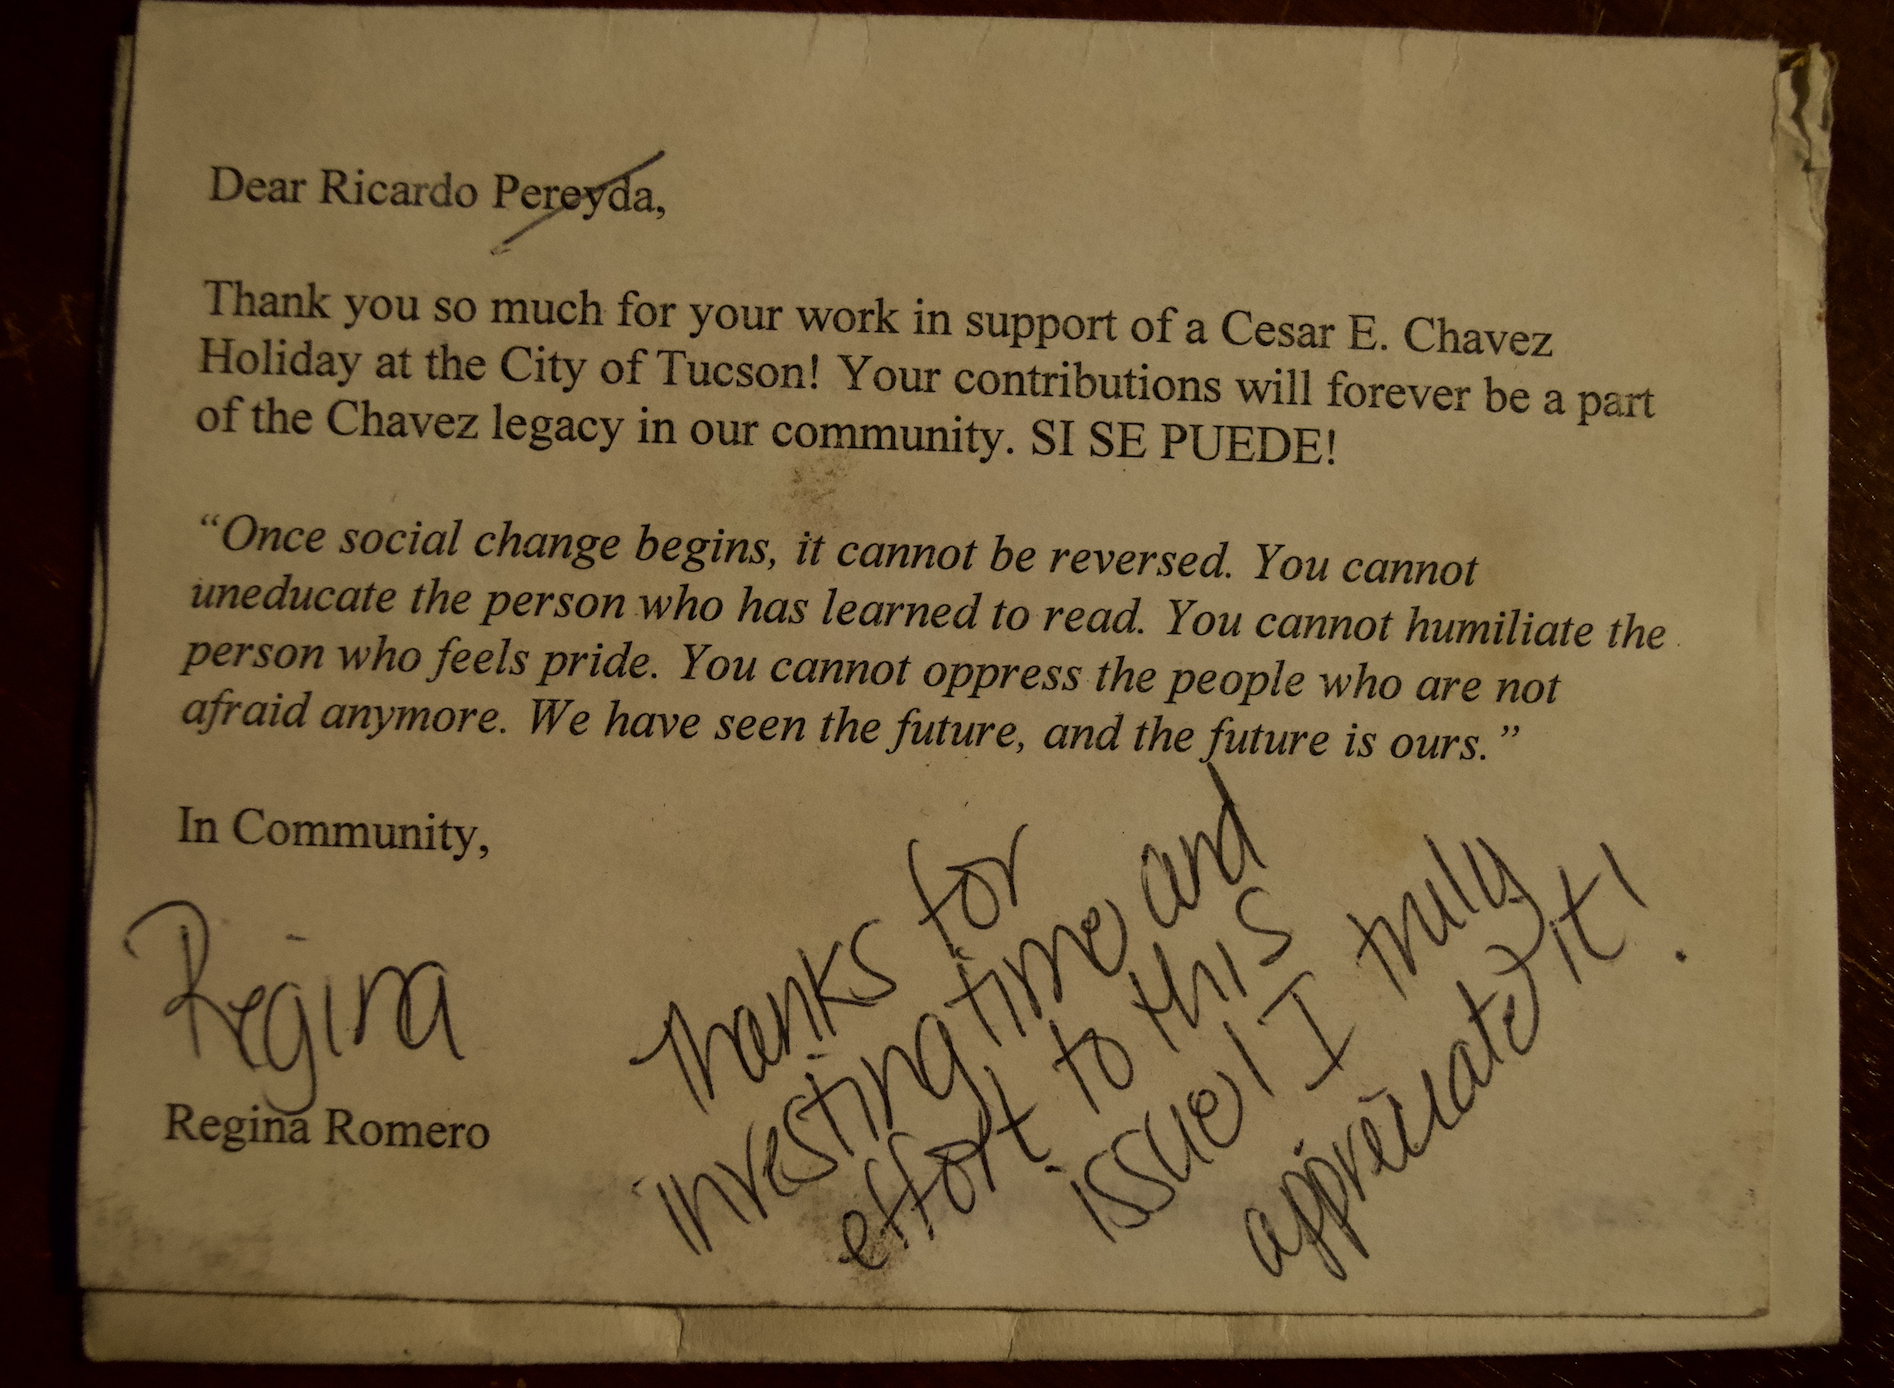 Dear Ricardo Pereyda,
Thank you so much for your work in support of a Cesar E. Chavez
Holiday at the City of Tucson! Your contributions will forever be a part
of the Chavez legacy in our community. SI SE PUEDE!
“Once social change begins, it cannot be reversed. You cannot
uneducate the person who has learned to read. You cannot humiliate the
person who feels pride. You cannot oppress the people who are not
afraid anymore. We have seen the future, and the future is ours.”
In Community,
Regina
Regina Romero
Thanks for
investing time and
effort to this
issue! I truly
appreciate it!